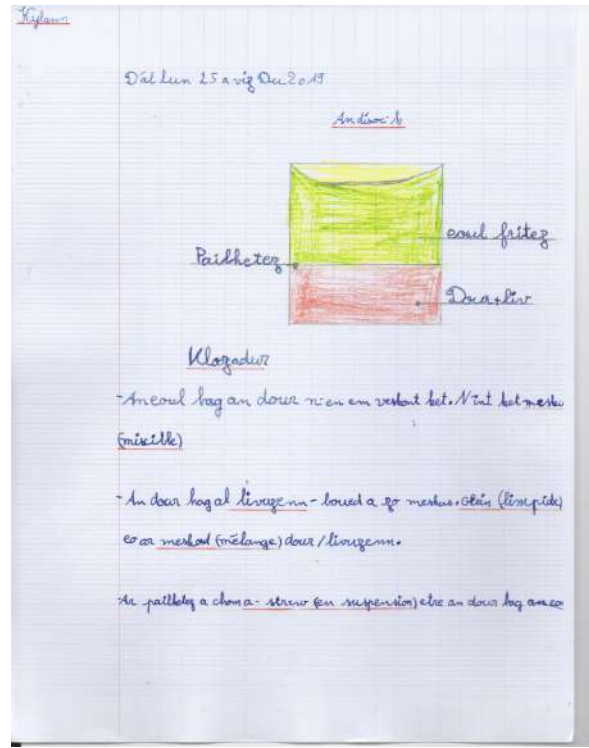 Kylann
D'al lun 25 a viz Du 2019
An disoc'h
eoul fritez
Pailhetez
Dour+liv
Klozadur
- An eoul hag an dour n'en em veskont ket. N'int ket mesku
(miscible)
- An dour hag al livuzenn-boued a zo meskus. Glein (limpide)
eo ar meskad (mélange) dour/livuzenn.
- Ar pailhetez a chom a-strew (en suspension) etre an dour hag an eo